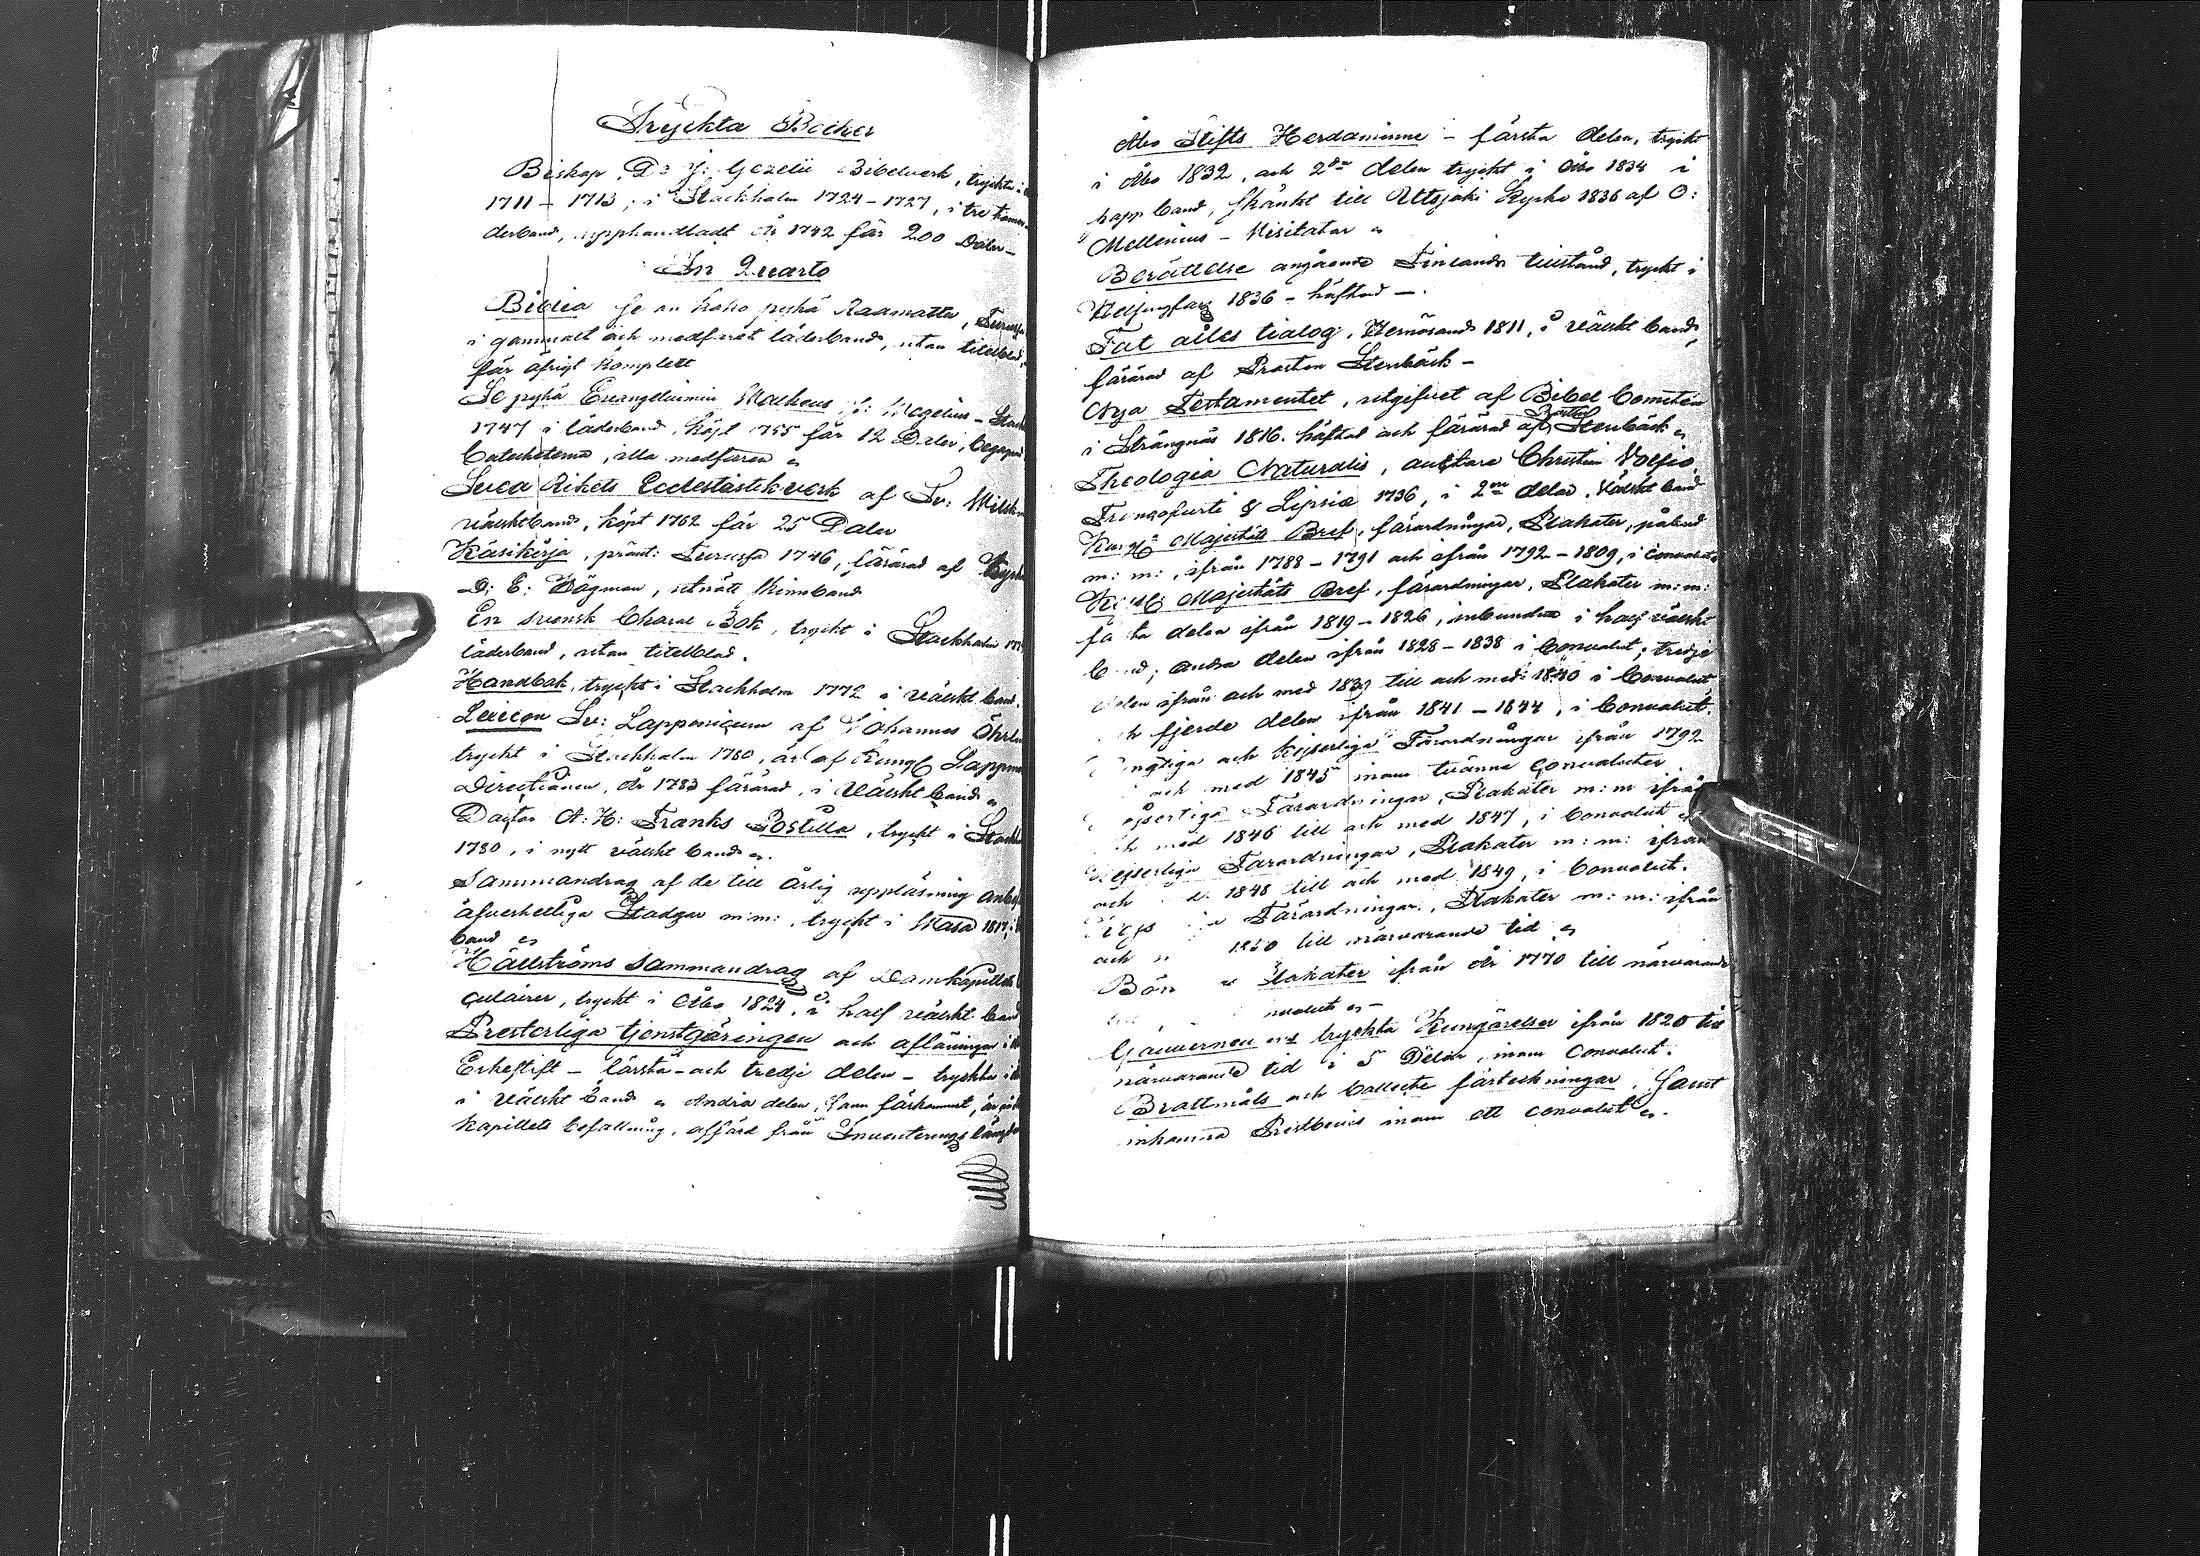 Tryckta Böcker
Biskop, D:r J: Gezelii Bibelverk, tryckta i
1711 – 1713, i Stockholm 1724 – 1727, i tre
derband, upphandladt år 1742 för 200 Daler –
In Quarto
Biblia Se on Koko pyhä Raamattu, Turusa
i gammalt och medfaret läderband, utan titelblad,
för öfrigt komplett
Se pyhä Evangeliumin Matheus
1747 i läderband, köpt 1755 för 12 Daler, begagnad
Catecheterna, illa medfaren
Svea Rikets Ecclesiastikverk af Sv: Wilsk
välsktband, köpt 1762 för 25 Daler
Käsikirja, pränt: Turusa 1746, förärad af Kyrkoh
D: E: Högman, utnött skinnband
En svensk Choral Bok, tryckt i Stockholm
läderband, utan titelblad.
Handbok, tryckt i Stockholm 1772 i välskt band.
Lexicon Sv: Lapponicum af Johannes Öhrlin
tryckt i Stockholm 1780, är af Kungl Lappm
Directionen, år 1783 förärad, i välskt band
Doctor A. H: Franks Postilla, tryckt i Stockh
1780, i nytt välskt band
Sammandrag af de till årlig uppläsning anbef
öfverhetliga Stadgar m:m:, tryckt i Wasa
band
Hällströms Sammandrag af Domkapitlets
culairer, tryckt i Åbo 1824, i half välskt band
Presterliga tjenstgöringen och aflöningen i
Erkestift – första – och tredje delen – tryckta i
i välskt band Andra delen, som förkommit, är på
kapitlets befallning, afförd från Inventeringslängden
Åbo Stifts Herdaminne – första delen, tryckt
i Åbo 1832, och 2dra delen tryckt i Åbo 1834 i
papp band, skänkt till Uttsjoki Kyrka 1836 af O:
Mellenius – Visitator
Berättelse angående Finlands tillstånd, tryckt i
Helsingfors 1836 – häftad –.
Tat alles tialog, Hernösand 1811, i välskt band,
förärad af Prosten Stenbäck –
Nya Testamentet, utgifvet af Bibel Comitén
i Strängnäs 1816. häftad och förärad af Prosten Stenbäck
Theologia Naturalis, auctore Christin Volfio,
Francofurti & Lipsiæ 1736, i 2ne delar, välskt band
Kungl Majestäts Bref, förordningar, Plakater, påbud
m: m:, ifrån 1788 – 1791 och ifrån 1792 – 1809, i convolut
Majestäts Bref, förordningar, Plakater m:m:
delen ifrån 1819 – 1826, inbundna i half välskt
band; andra delen ifrån 1828 – 1838 i Convolut; tredje
delen ifrån och med 1839 till och med 1840 i Convolut,
fjerde delen ifrån 1841 – 1844, i Convolut.
och Kejserliga Förordningar ifrån 1792
och med 1845 inom tvänne Convoluter.
Förordningar, Plakater m:m ifrån
med 1846 till och med 1847, i Convolut
Kejserliga Förordningar, Plakater m: m: ifrån
och 1848 till och med 1849, i Convolut.
Förordningar, Plakater m: m: ifrån
och 1850 till närvarande tid
Bön Plakater ifrån år 1770 till närvarande
Gouverneu tryckta Kungörelser ifrån 1820 till
närvarande tid i 5 Delar, inom Convolut.
Brottmåls och Collecte förteckningar, samt
inkomna Prestbevis inom ett convolut